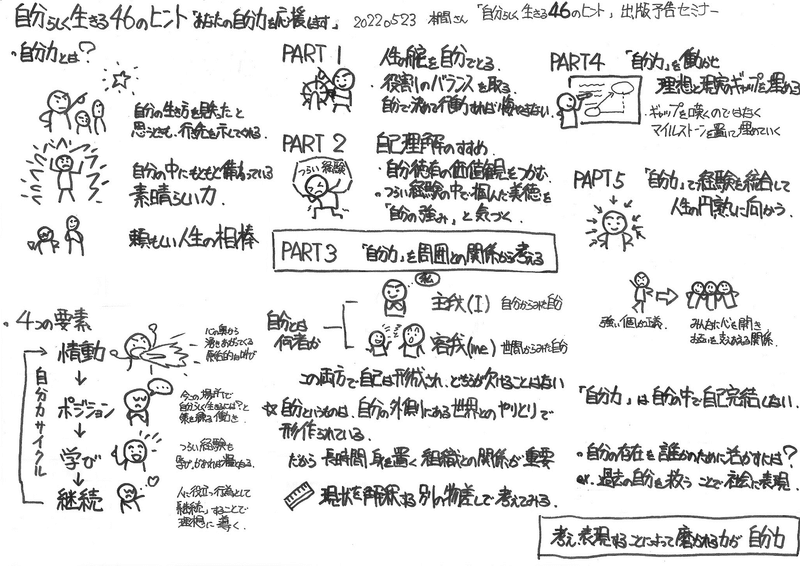 自分らしく生きる46のヒント「あなたの自分力を応援します」 20220523 本間さん「自分らしく生きる46のヒント」出版予告セミナー
・自分力とは?
自分の生き方を見失ったと
思うときも、行先を示してくれる
自分の中にもともと備わっている
素晴らしい力
頼もしい人生の相棒
・4つの要素
自分力サイクル
情動
心の奥から
湧きあがってくる
原始的な叫び
↓
ポジション
今この場所で
自分らしく生きるには?と
策を練る働き
↓
学び
つらい経験も
学びがあれば
↓
継続
人に役立つ行為として
「継続」することで
理想に導く
PART 1
人生の舵を自分でとる
・役割りのバランスを取る
自分で決めて行動すれば悔やまない
PART 2
自己理解のすすめ
つらい経験
・自分独自の価値観をつかむ
・つらい経験の中で掴んだ美徳を
「自分の強み」と気づく
PART 3 「自分力」を周囲との関係から考える
自分とは
何者か
私
主我(I) 自分からみた自分
客我(me) 世間からみた自分
この両方で自己は形成され、どちらが欠けることはない
☆自分というものは、自分の外側にある世界とのやりとりで
形作られている
だから 長時間 身を置く 組織との関係が重要
現状を解釈する別の物差しで考えてみる
PART4 「自分力」を働かせ
理想と現実のギャップを埋める
ギャップを嘆くのではなく
マイルストーンを置いて埋めていく
PART5 「自分力」で経験を統合して
人生の円熟に向かう
強い個が正義
⇨
みんなに心を開き
お互いを支えあえる関係
「自分力」は自分の中で自己完結しない
・自分の存在を誰かのために活かすには?
ex. 過去の自分を救うことで社会に表現
考え、表現することによって磨かれる力が 自分力